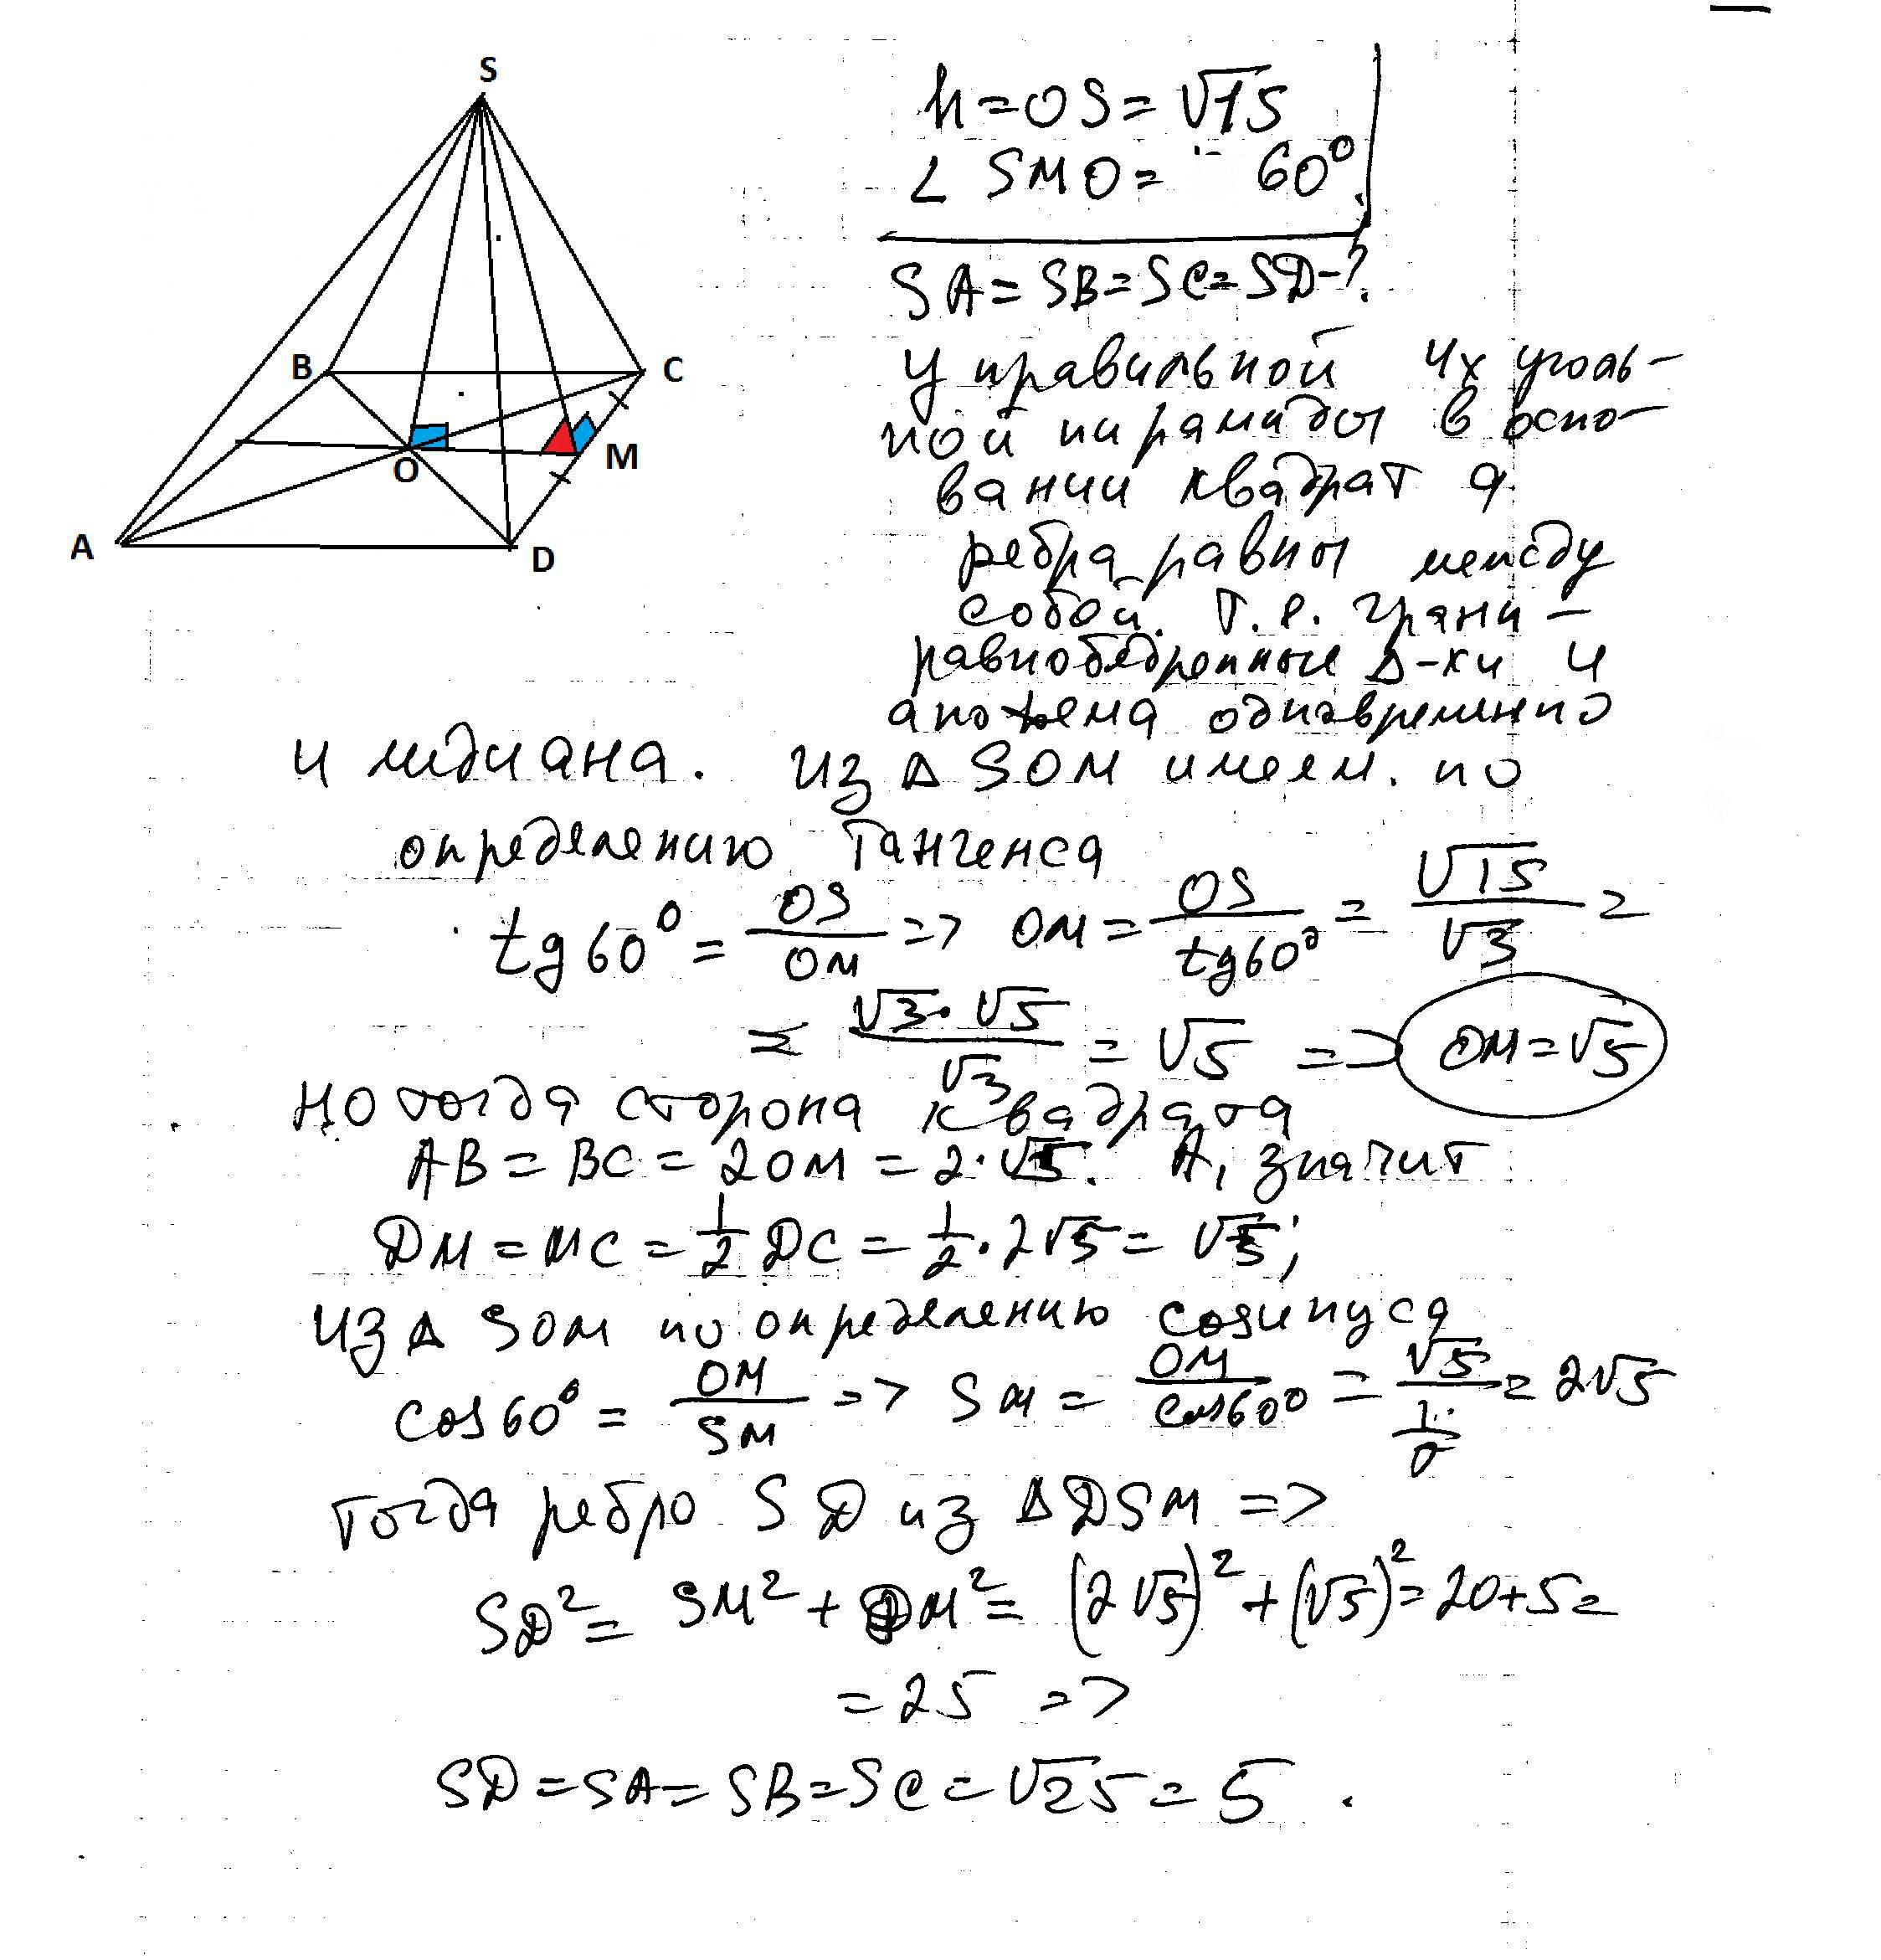 S
B
C
O
M
A
D
h=OS=√15
∠ SMO= 60°
SA=SB=SC=SD-?
У правильной 4х уголь-
ной пирамиды в осно-
вании квадрат а
ребра равны между
собой. Т.е. грани -
равнобедренные Δ-ки и
апофема одновременно
и медиана. Из Δ SOM имеем. по
определению тангенса
tg60° = OS/OM => OM = OS/tg60° = √15/√3 =
= √3·√5/√3 = √5 => OM=√5
но тогда сторона квадрата
AB = BC = 2OM = 2·√5. А, значит
DM = MC = 1/2 DC = 1/2 · 2√5 = √5;
Из Δ SOM по определению косинуса
cos60° = OM/SM => SM = OM/cos60° = = 2√5
Тогда ребро SD из ΔDSM =>
SD² = SM² + DM² = (2√5)² + (√5)² = 20+5=
= 25 =>
SD=SA=SB=SC=√25=5.